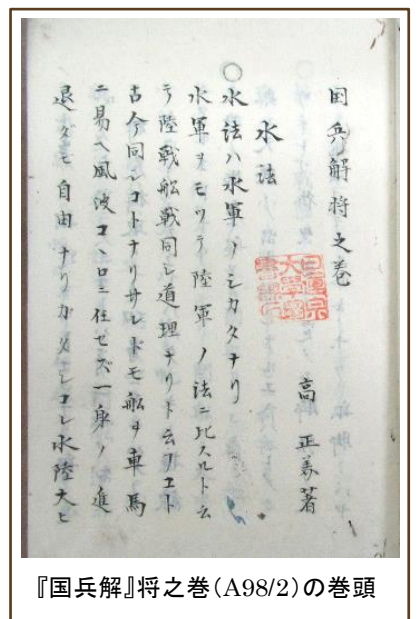 国兵解将之巻
高正 著
水法
〇水法ハ水軍ノシカタナリ
水軍ヲモツテ陸軍ノ法ニ比スルト云
陸戦船戦同シ道理ナリト云
古今同シコトナリサレドモ船ヲ車馬
ニ易ヘ風波コヽロニ任セズ一身ノ進
退タモ自由ナリカタシコレ水陸大ヒ
『国兵解』将之巻(A98/2)の巻頭